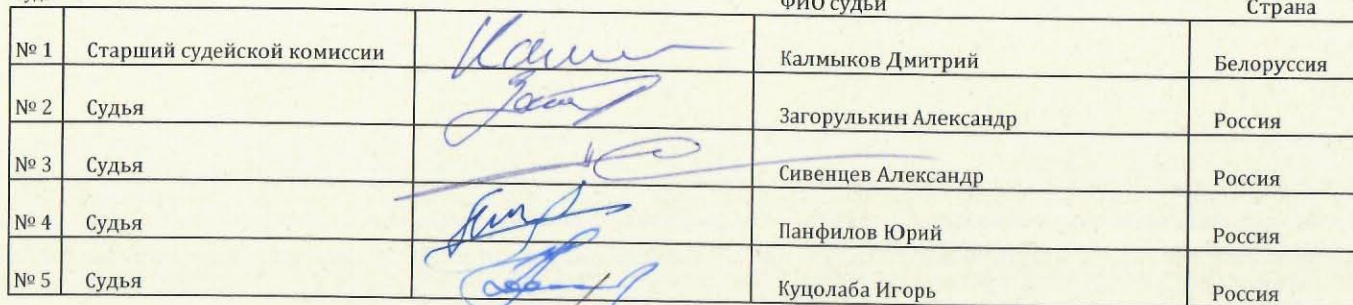 ФИО судьи Страна
№ 1 Старший судейской комиссии Калмыков Дмитрий Белоруссия
№ 2 Судья Загорулькин Александр Россия
№ 3 Судья Сивенцев Александр Россия
№ 4 Судья Панфилов Юрий Россия
№ 5 Судья Куцолаба Игорь Россия